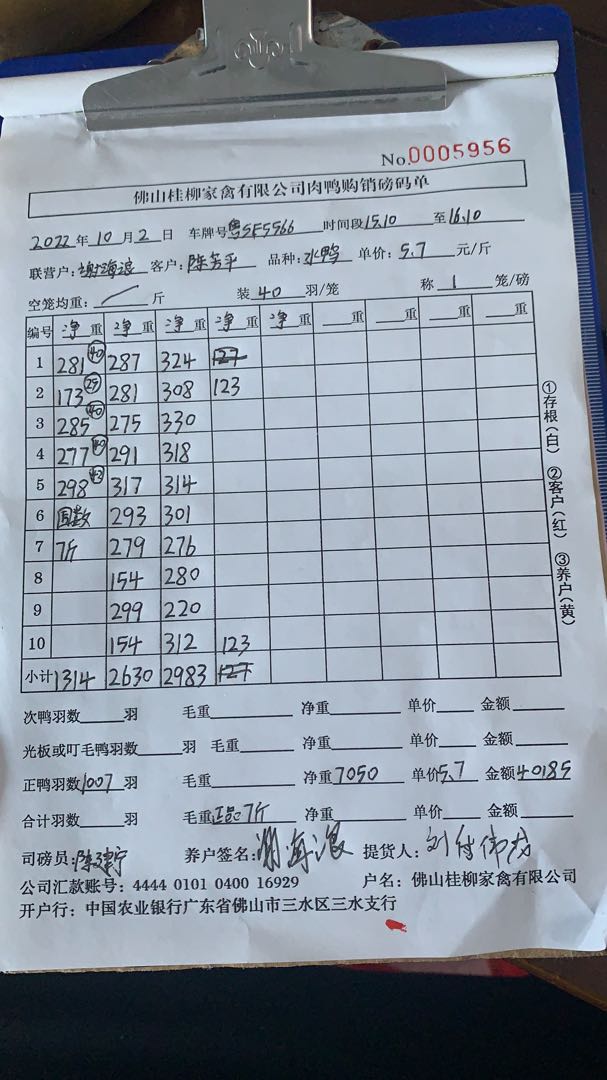 No.0005956
佛山桂柳家禽有限公司肉鸭购销磅码单
2022年10月2日 车牌号粤SF5566 时间段15.10 至16.10
联营户:谢海浪 客户:陈芳平 品种:水鸭 单价:5.7 元/斤
空笼均重: / 斤 装 40 羽/笼 称 1 笼/磅
编号 净重 净重 净重 净重 净重 重 重 重
1 281 40 287 324 127
2 173 25 281 308 123
3 285 40 275 330
4 277 40 291 318
5 298 42 317 314
6 围数 293 301
7 7斤 279 276
8 154 280
9 299 220
10 154 312 123
小计 1314 2630 2983 127
①存根(白) ②客户(红) ③养户(黄)
次鸭羽数 羽 毛重 净重 单价 金额
光板或叮毛鸭羽数 羽 毛重 净重 单价 金额
正鸭羽数1007羽 毛重 净重7050 单价5.7 金额40185
合计羽数 羽 毛重 7斤 净重 单价 金额
司磅员: 养户签名:谢海浪 提货人:
公司汇款账号:4444 0101 0400 16929 户名:佛山桂柳家禽有限公司
开户行:中国农业银行广东省佛山市三水区三水支行